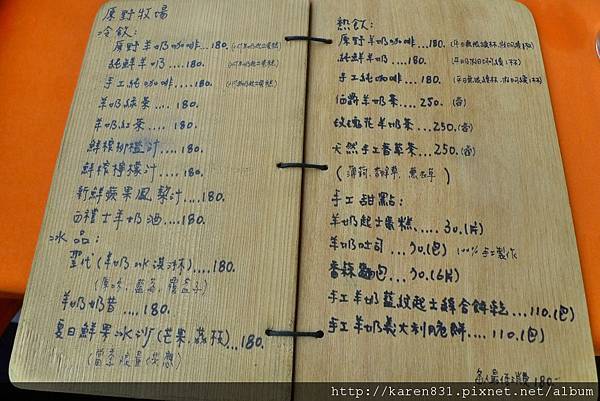 原野牧場
冷飲:
原野羊奶咖啡...180.
純鮮羊奶....180.
手工純咖啡....180.
羊奶綠茶....180.
羊奶紅茶....180.
鮮榨柳橙汁....180.
鮮榨檸檬汁....180.
新鮮蘋果鳳梨汁....180.
羊奶酒....180.
冰品:
聖代(羊奶冰淇淋)....180.
羊奶奶昔....180.
夏日鮮果冰沙(芒果.荔枝)...180.
(當季限量供應)
熱飲:
原野羊奶咖啡...180.
純鮮羊奶....180.
手工純咖啡...180.
伯爵羊奶茶....250.(壺)
玫瑰花羊奶茶...250.(壺)
天然手工香草茶...250.(壺)
手工甜點:
羊奶起士蛋糕.....30.(片)
羊奶吐司...30.(包) 100%手工製作
香辣麵包....30.(6片)
手工羊奶藍紋起士綜合餅乾....110.(包)
手工羊奶義大利脆餅....110.(包)
每人最低消費180-
http://karen831.pixnet.net/album